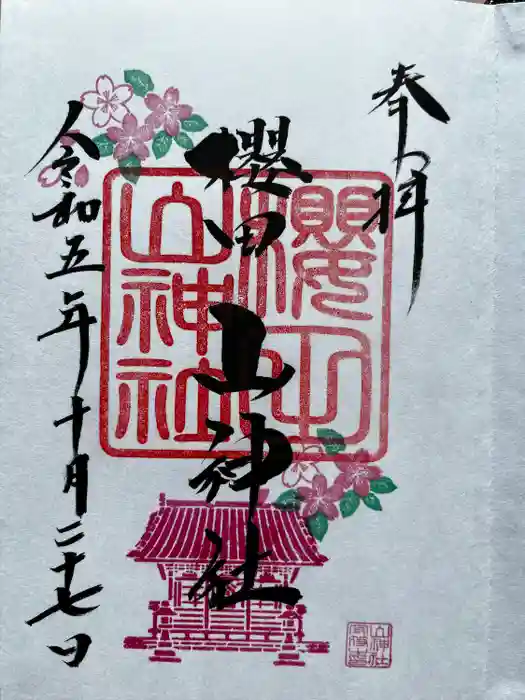 奉拝
櫻田山神社
櫻田
山神社
令和五年十月二十七日